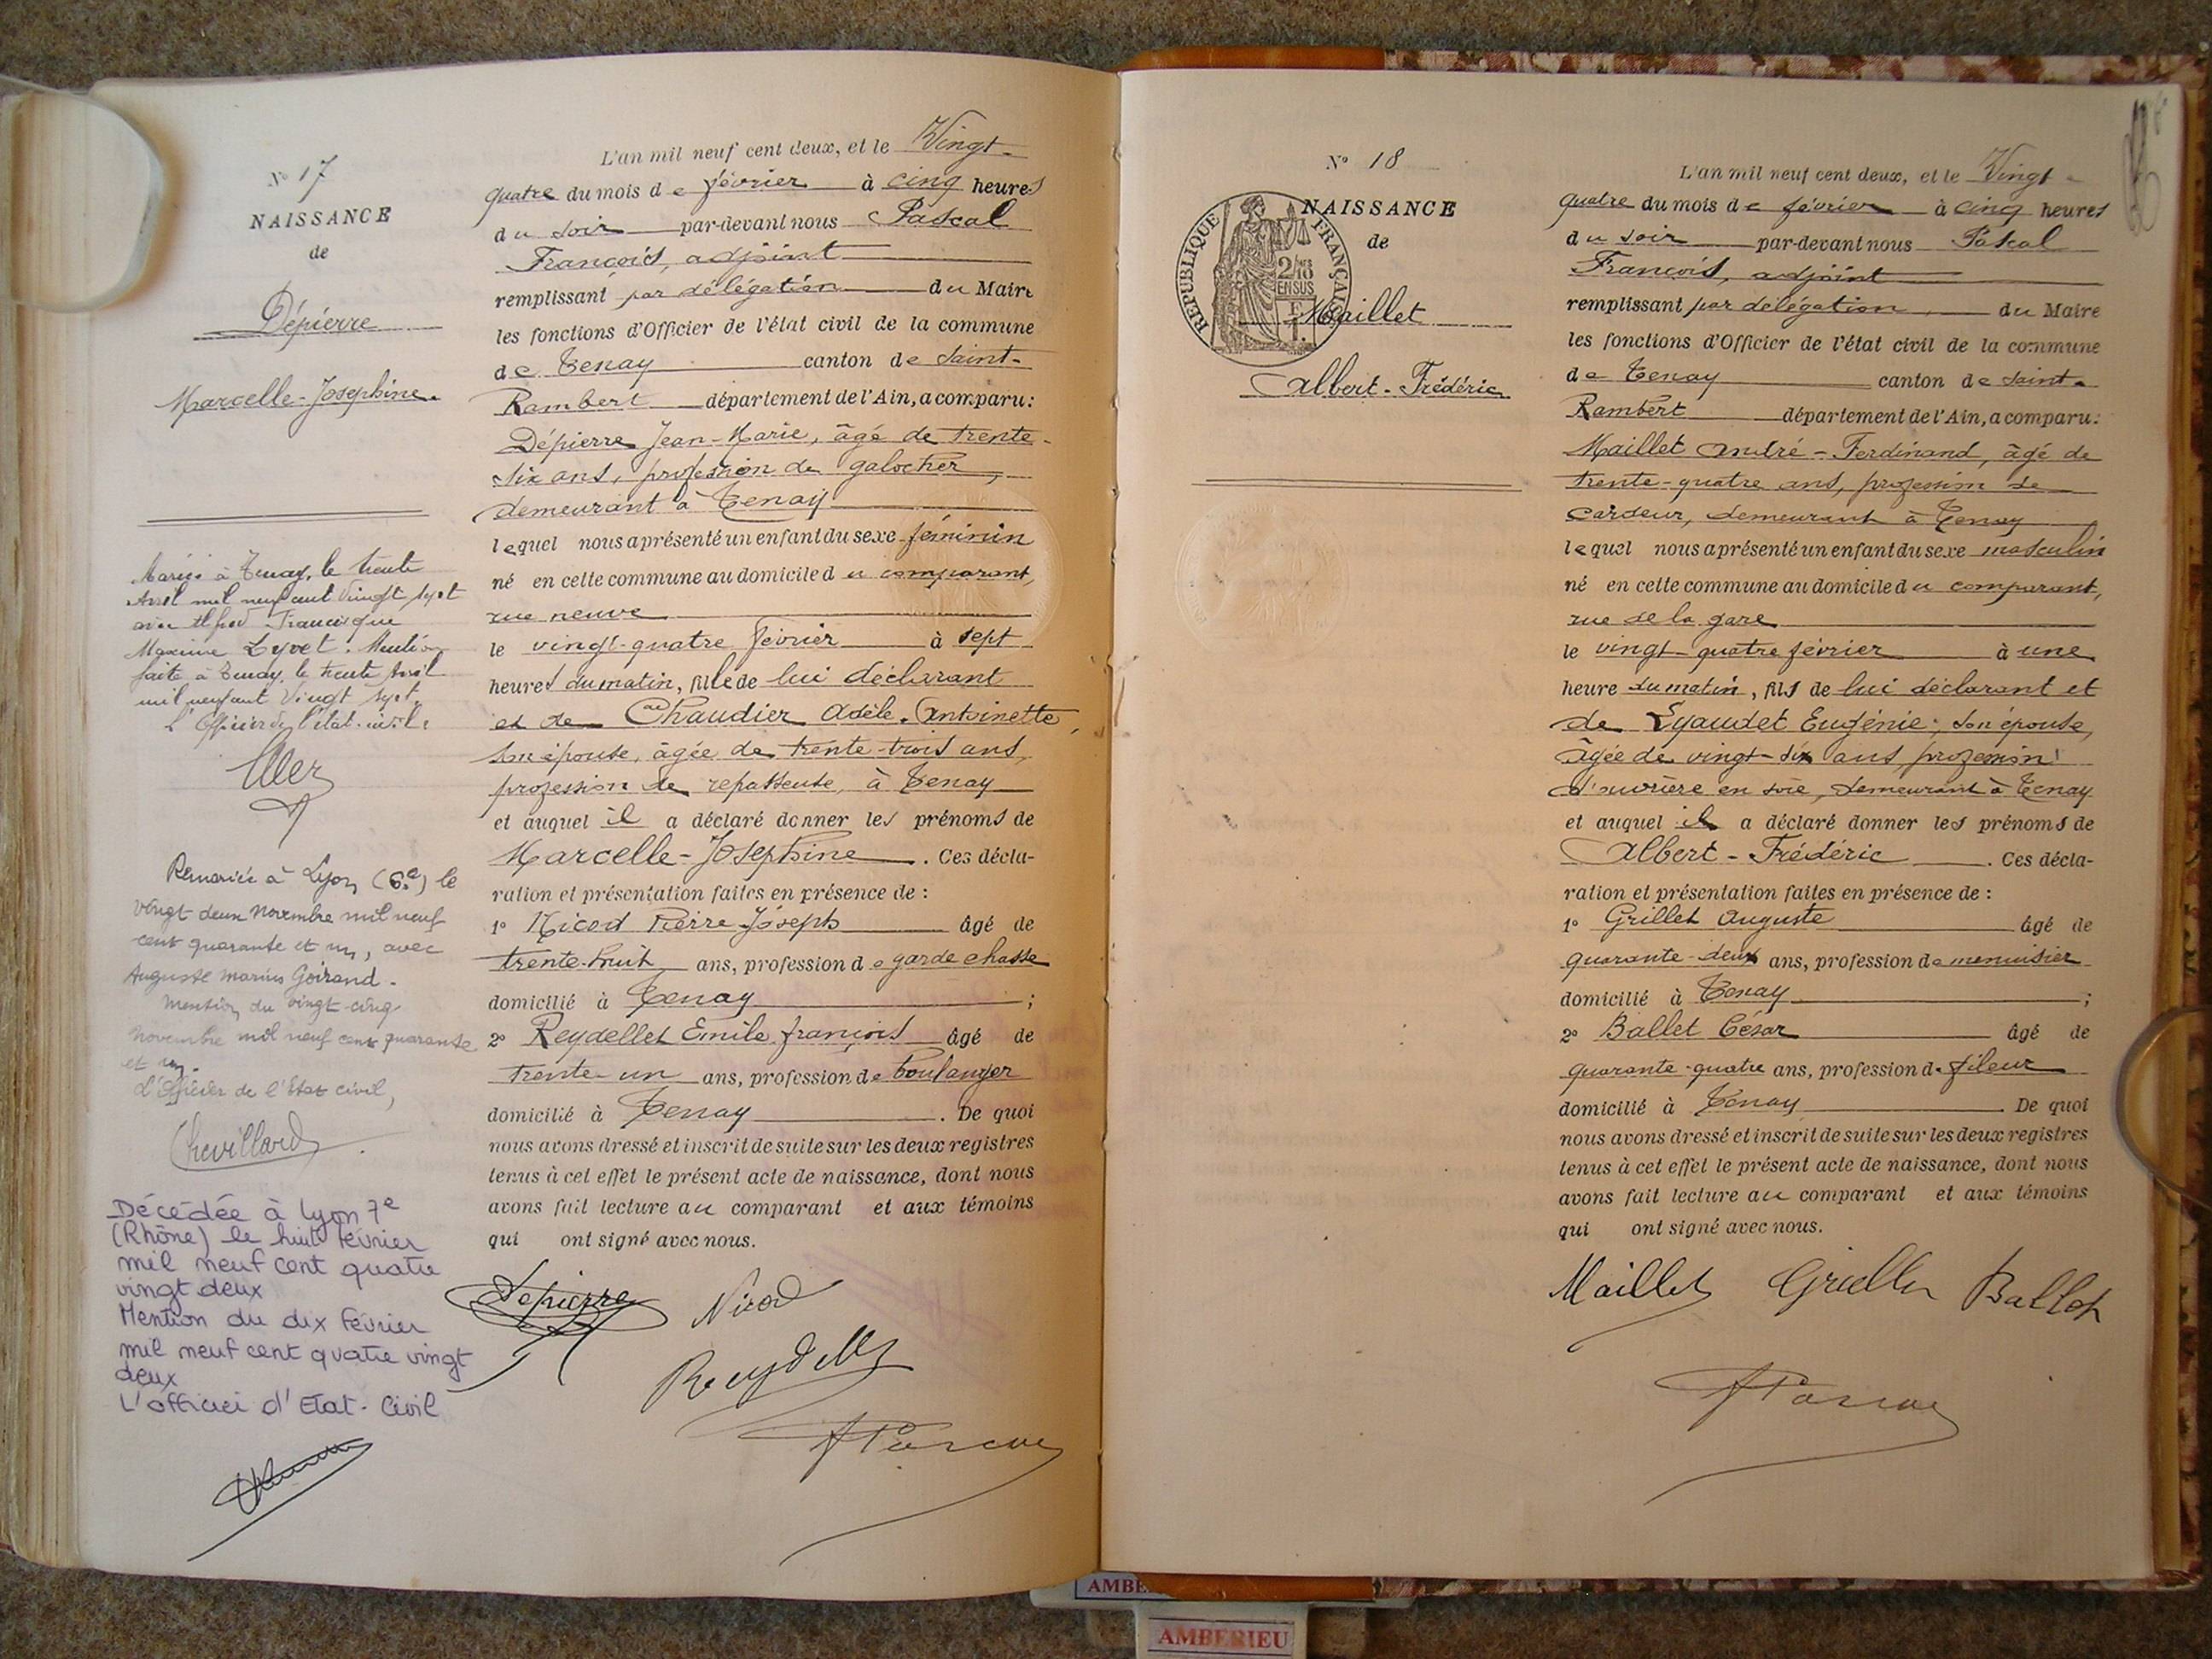 N° 17
NAISSANCE
de
Dépierre
Marcelle-Joséphine.
Mariée à Tenay, le trente
Avril mil neuf cent vingt sept
avec Alfred Francisque
Maxime Lyvet. Mention
faite à Tenay, le trente Avril
mil neuf cent vingt sept.
L'Officier de l'état-civil:
Remariée à Lyon (6e) le
vingt deux novembre mil neuf
cent quarante et un, avec
Auguste Marius Goirand.
Mention du vingt-cinq
novembre mil neuf cent quarante
et un.
L'Officier de l'Etat civil,
Chevillard
Décédée à Lyon 7e
(Rhône) le huit février
mil neuf cent quatre
vingt deux
Mention du dix février
mil neuf cent quatre vingt
deux
L'officier d'Etat-Civil
L'an mil neuf cent deux, et le Vingt-
quatre du mois de février à cinq heures
du soir par-devant nous Pascal
François, adjoint
remplissant par délégation du Maire
les fonctions d'Officier de l'état civil de la commune
de Tenay canton de Saint-
Rambert département de l'Ain, a comparu:
Dépierre Jean-Marie, âgé de trente-
six ans, profession de galocher,
demeurant à Tenay
lequel nous a présenté un enfant du sexe féminin
né en cette commune au domicile du comparant,
rue neuve
le vingt-quatre février à sept
heures du matin, fille de lui déclarant
et de Chaudier Adèle-Antoinette,
son épouse, âgée de trente-trois ans,
profession de repasseuse, à Tenay
et auquel il a déclaré donner les prénoms de
Marcelle-Joséphine. Ces décla-
ration et présentation faites en présence de :
1° Nicod Pierre Joseph âgé de
trente-huit ans, profession de garde chasse
domicilié à Tenay ;
2° Reydellet Emile françois âgé de
trente-un ans, profession de boulanger
domicilié à Tenay. De quoi
nous avons dressé et inscrit de suite sur les deux registres
tenus à cet effet le présent acte de naissance, dont nous
avons fait lecture au comparant et aux témoins
qui ont signé avec nous.
Depierre Nicod
Reydellet
N° 18
NAISSANCE
de
RÉPUBLIQUE FRANÇAISE
2/10 EN SUS
Maillet
Albert-Frédéric
L'an mil neuf cent deux, et le Vingt-
quatre du mois de février à cinq heures
du soir par-devant nous Pascal
François, adjoint
remplissant par délégation du Maire
les fonctions d'Officier de l'état civil de la commune
de Tenay canton de Saint-
Rambert département de l'Ain, a comparu:
Maillet André-Ferdinand, âgé de
trente-quatre ans, profession de
cardeur, demeurant à Tenay
lequel nous a présenté un enfant du sexe masculin
né en cette commune au domicile du comparant,
rue de la gare
le vingt-quatre février à une
heure du matin, fils de lui déclarant et
de Eyaudet Eugénie, son épouse,
âgée de vingt-six ans, profession
d'ouvrière en soie, demeurant à Tenay
et auquel il a déclaré donner les prénoms de
Albert-Frédéric. Ces décla-
ration et présentation faites en présence de :
1° Grillet Auguste âgé de
quarante-deux ans, profession de menuisier
domicilié à Tenay ;
2° Ballet César âgé de
quarante-quatre ans, profession de fileur
domicilié à Tenay. De quoi
nous avons dressé et inscrit de suite sur les deux registres
tenus à cet effet le présent acte de naissance, dont nous
avons fait lecture au comparant et aux témoins
qui ont signé avec nous.
Maillet Grillet Ballet
AMBE
AMBERIEU